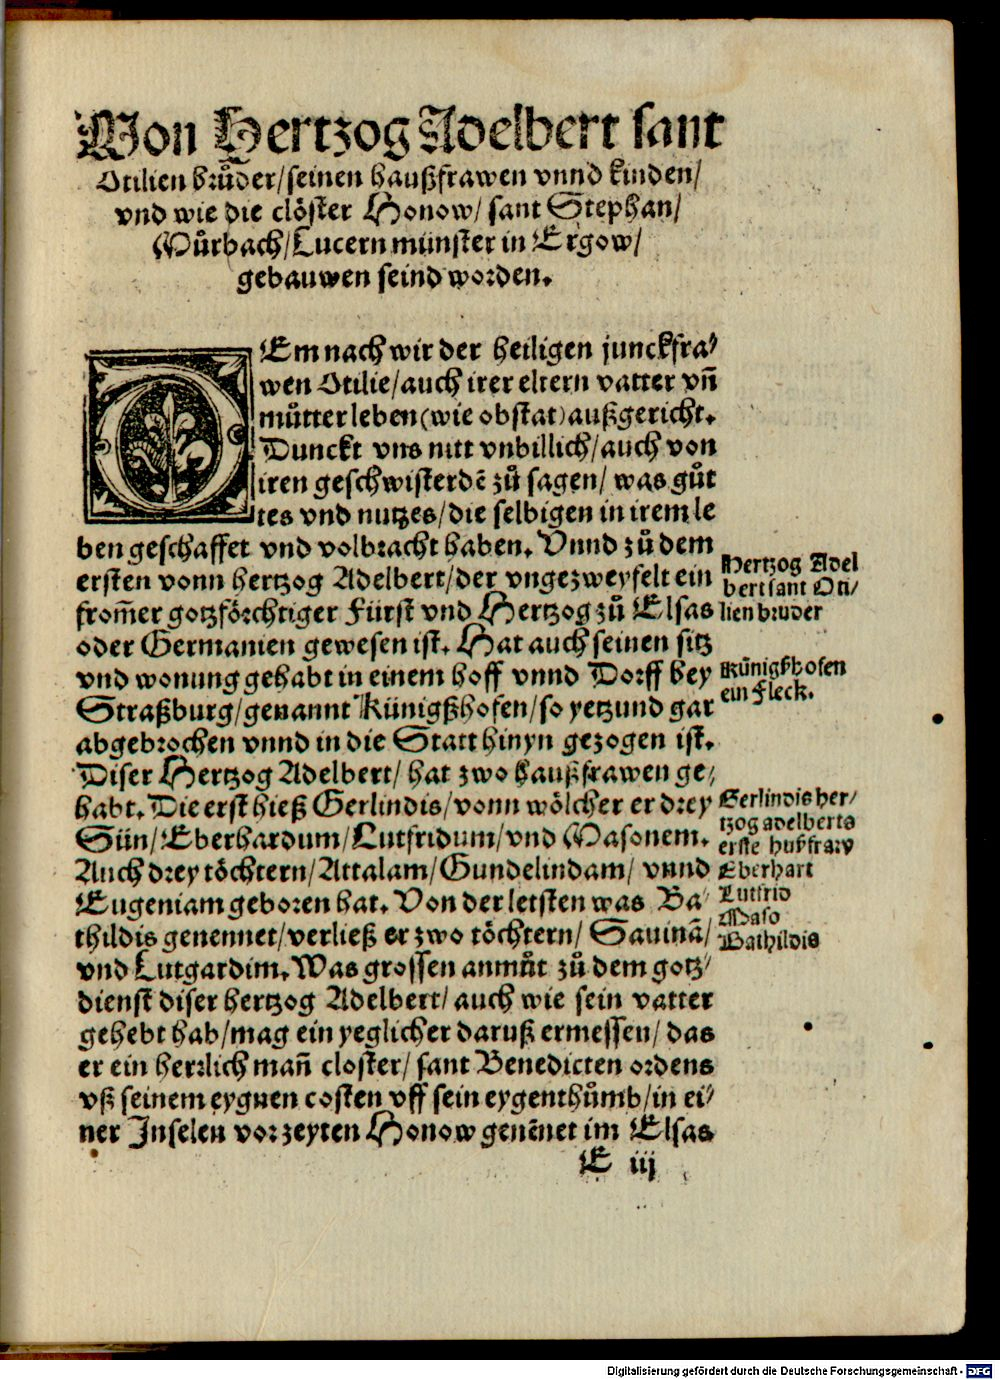 Von Hertzog Adelbert sant
Otilien brůder/seinen haußfrawen vnnd kinden/
vnd wie die clöster Honow/ sant Stephan/
Můrbach/Lucern münster in Ergow/
gebauwen seind worden.
DEm nach wir der heiligen junckfra/
wen Otilie/auch irer eltern vatter vñ
můtter leben (wie obstat) außgericht.
Dunckt vns nitt vnbillich/auch von
iren geschwisterdẽ zů sagen/ was gůt
tes vnd nutzes/die selbigen in irem le
ben geschaffet vnd volbracht haben. Vnnd zů dem
ersten vonn hertzog Adelbert/der vngezweyfelt ein
from̃er gotzförchtiger Fürst vnd Hertzog zů Elsas
oder Germanien gewesen ist. Hat auch seinen sitz
vnd wonung gehabt in einem hoff vnnd Dorff bey
Straßburg/genannt Künigßhofen/so yetzund gar
abgebrochen vnnd in die Statt hinyn gezogen ist.
Diser Hertzog Adelbert/ hat zwo haußfrawen ge/
habt. Die erst hieß Gerlindis/vonn wölcher er drey
Sün/Eberhardum/Lutfridum/vnd Masonem.
Auch drey töchtern/Attalam/Gundelindam/ vnnd
Eugeniam geboren hat. Von der letsten was Ba/
thildis genennet/verließ er zwo töchtern/ Sauinã/
vnd Lutgardim. Was grossen anmůt zů dem gotz/
dienst diser hertzog Adelbert/auch wie sein vatter
gehebt hab/mag ein yeglicher daruß ermessen/das
er ein herrlich mañ closter/ sant Benedicten ordens
vß seinem eygnen costen vff sein eygenthůmb/in ei/
ner Inselen vorzeyten Honow genẽnet im Elsas
E iij
Hertzog Adel
bert sant Oti/
lien bruder
Künigßhofen
ein Fleck.
Gerlindis her/
tzog adelberts
erste hußfraw
Eberhart
Lutfrid
Maso
Bathildis
Digitalisierung gefördert durch die Deutsche Forschungsgemeinschaft - DFG